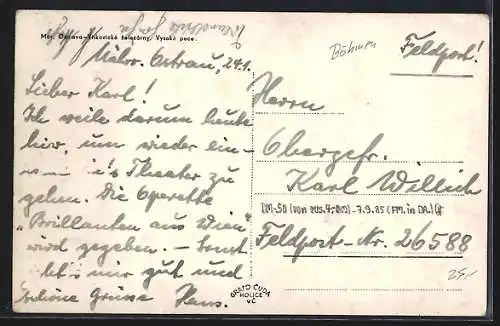 Mor. Ostrava-Vítkovické železárny. Vysoké pece.
Mähr. Ostrau, 24.1.
Lieber Karl!
Ich weile darum heute
hier, um wieder ein-
Theater zu
gehen. Die Operette
"Brillanten aus Wien"
wird gegeben. – Sonst
geht's mir gut und
schöne Grüsse Hans.
Böhmen
Feldpost!
Herrn
Obergefr.
Karl Willich
Feldpost-Nr. 26588
25,-
GRAFO ČUDA
HOLICE
VČ